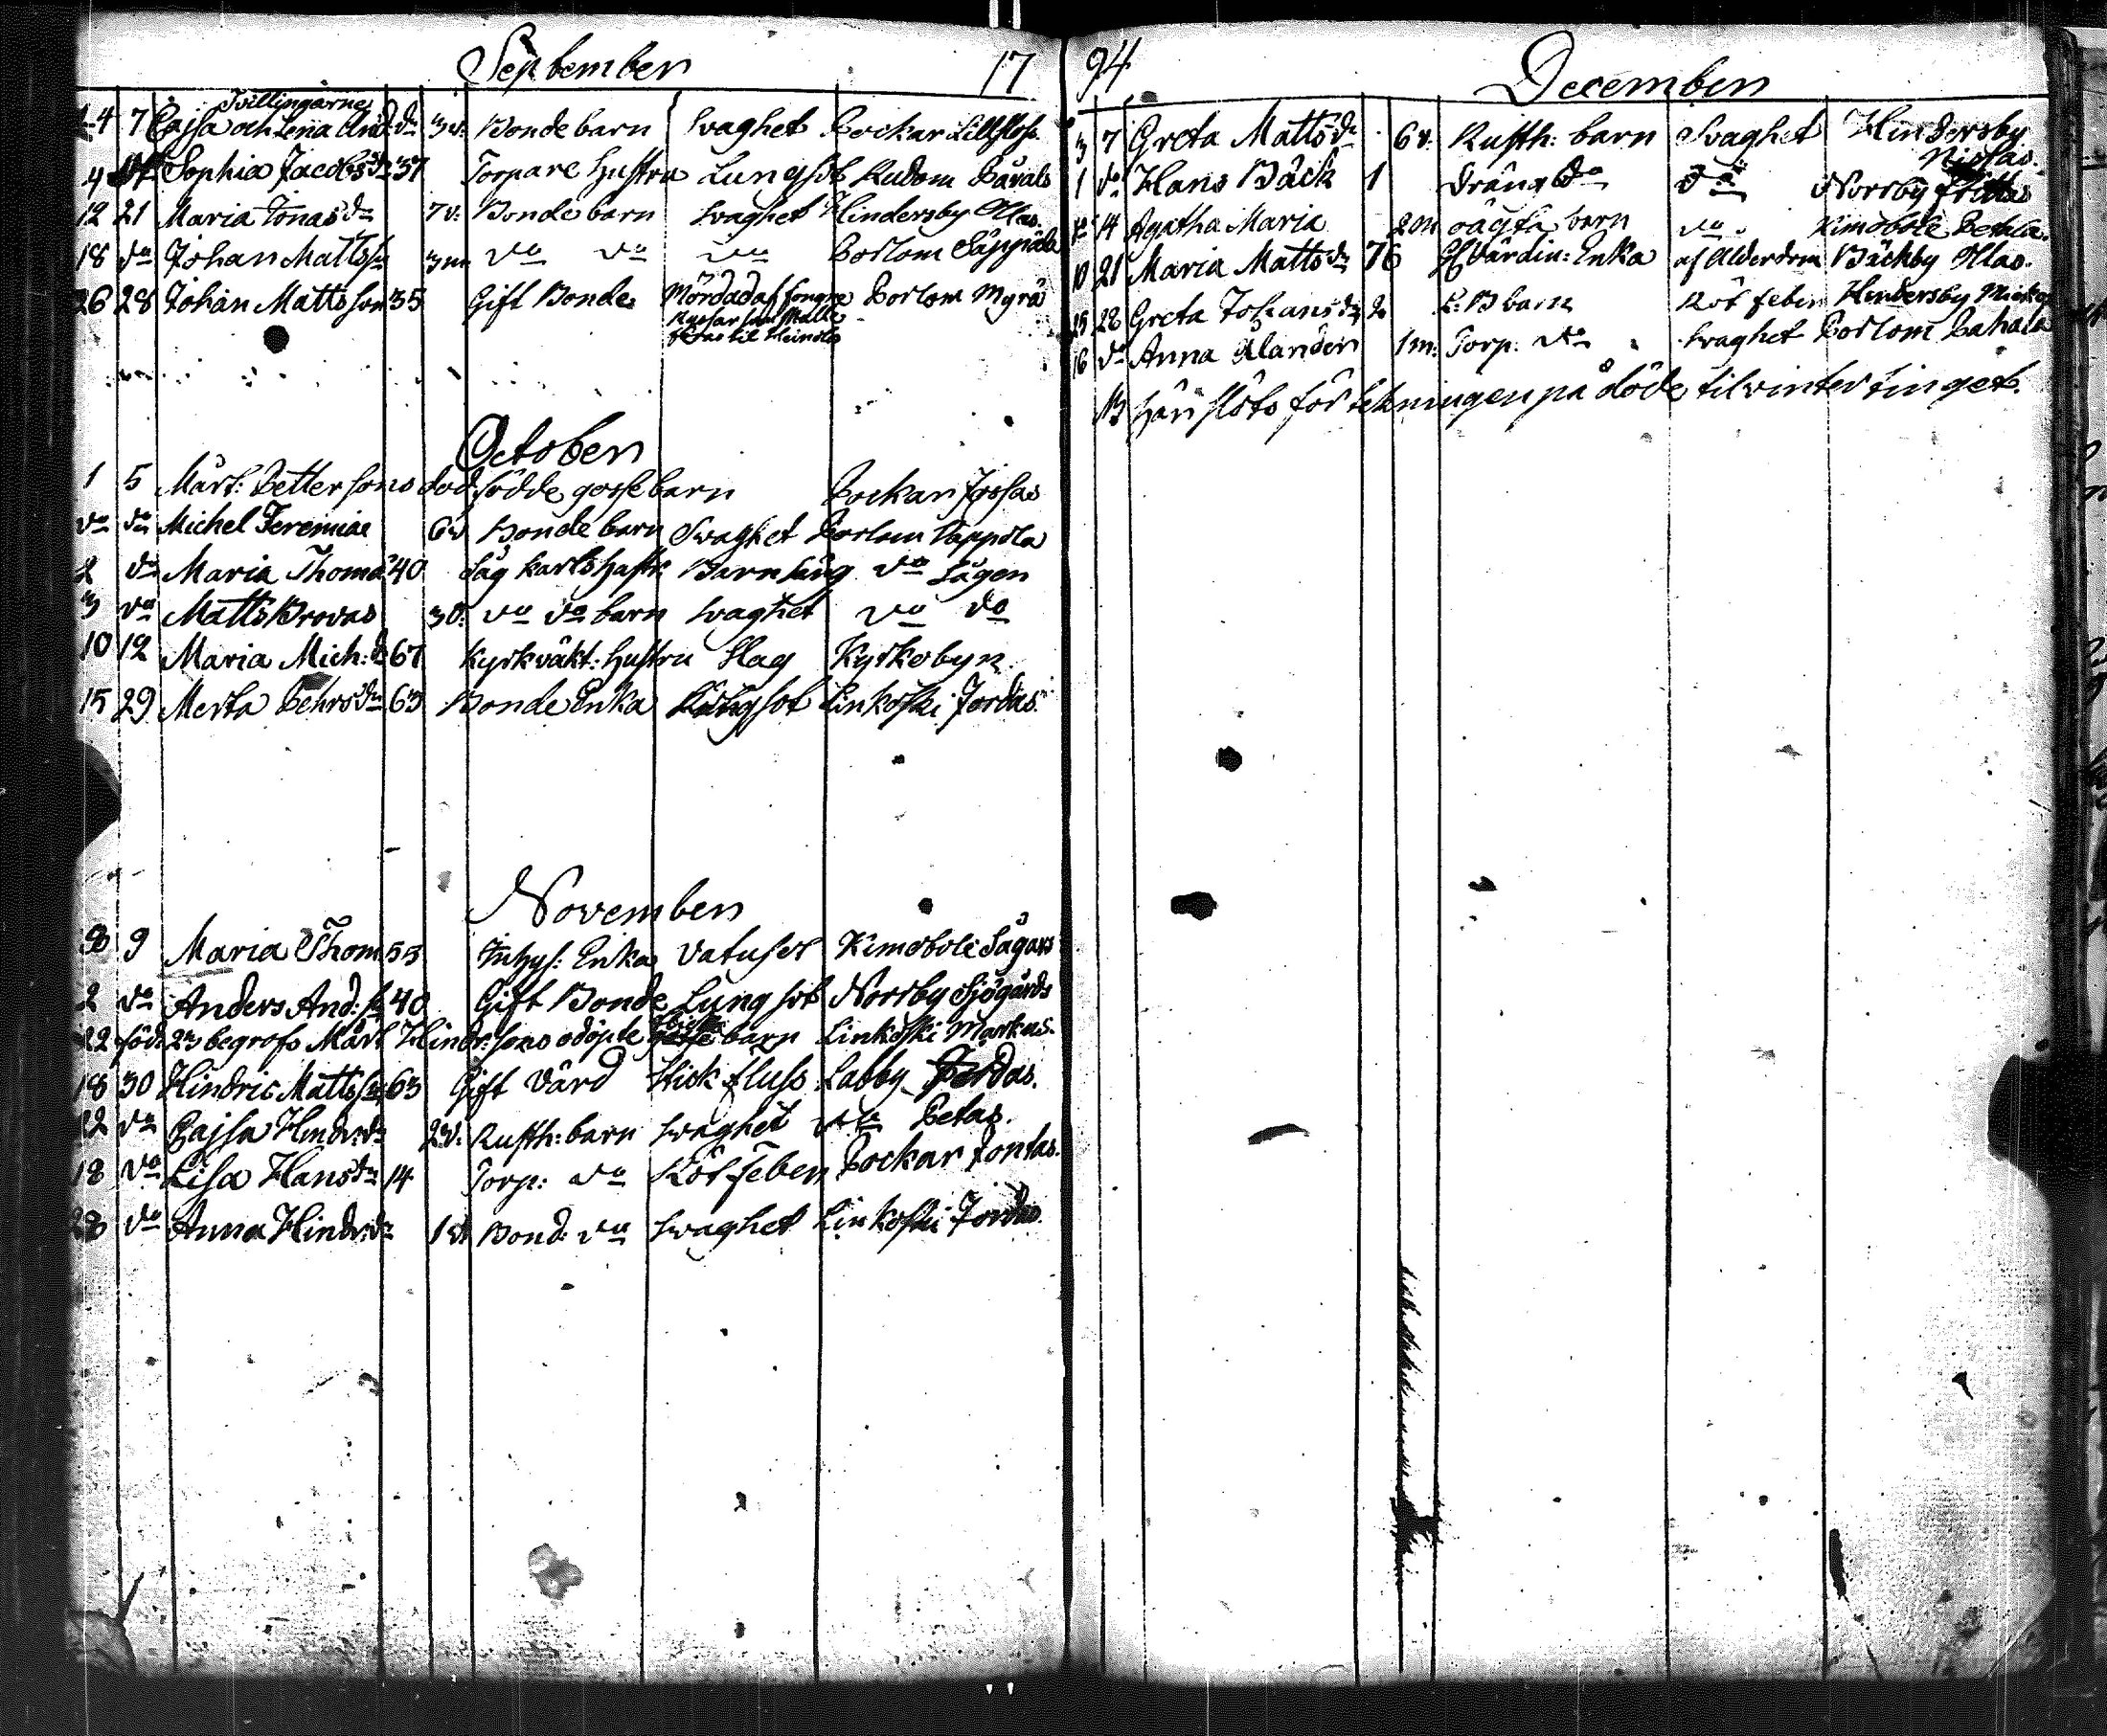 September 17
Tvillingarne
2-4 7 Cajsa och Lena And: dr 3 v: Bonde barn Swaghet Pockar Lillflors
4 Sophia Jacobsdr 37 Torpare hustru Lungsot Rudom Påvals
12 21 Maria Jonas dr 7 v: Bonde barn Swaghet Hindersby Ollas
18 do Johan Mattss: 3 m do do do Porlom Säppälä
26 28 Johan Mattsson 35 Gift Bonde Mördad af fongne Porlom Myrä
Ryssar som
til Heinola
October
1 5 Mårt: Pettersons död födde gosse barn Pockar Jossas
do do Michel Jeremiae 6 d Bonde barn Swaghet Porlom Pappila
2 do Maria Thomæ 40 Såg karls hustr: Barnsäng do Sågen
3 do Matts Brovas 3 d: do do barn Swaghet do do
10 12 Maria Mich: d 67 Kyrkväkt: hustru Slag Kyrkobyn
15 29 Merta Pehrsdr 63 Bonde Enka Lungsot Linkoski Jordas
November
8 9 Maria Thom 53 Inhys: Enka Vatusot Kimoböle Sågars
2 do Anders And: s: 40 Gift Bonde Lungsot Norrby Sjögårds
22 föd: 23 begrofs Mårt Hindr: sons odöpte barn Linkoski Markus
18 30 Hindric Mattss: 63 Gift Värd Stick fluss Labby Jordas.
22 do Cajsa Hindr: dr 2 d: Rusth: barn Swaghet do Petas.
18 do Lisa Hansdr 14 Torp: do Rötfeber Pockar Jontas.
28 do Anna Hindr: dr 1 d Bond: do Swaghet Linkoski Jordas.
94
December
3 7 Greta Mattsdr 6 v: Rusth: barn Swaghet Hindersby
Nissas.
1 do Hans Bäck 1 dräng do do Norrby
12 14 Agatha Maria 2 m oägta barn do Kimoböle
10 21 Maria Mattsdr 76 Värdin: Enka af Ålderdom Bäckby Ollas.
25 28 Greta Johansdr 2 L: B barn Röt feber Hindersby
16 do Anna Alander 1 m: Torp: do Swaghet Porlom Pahala
NB här slöts förtekningen på döde til vintertinget.